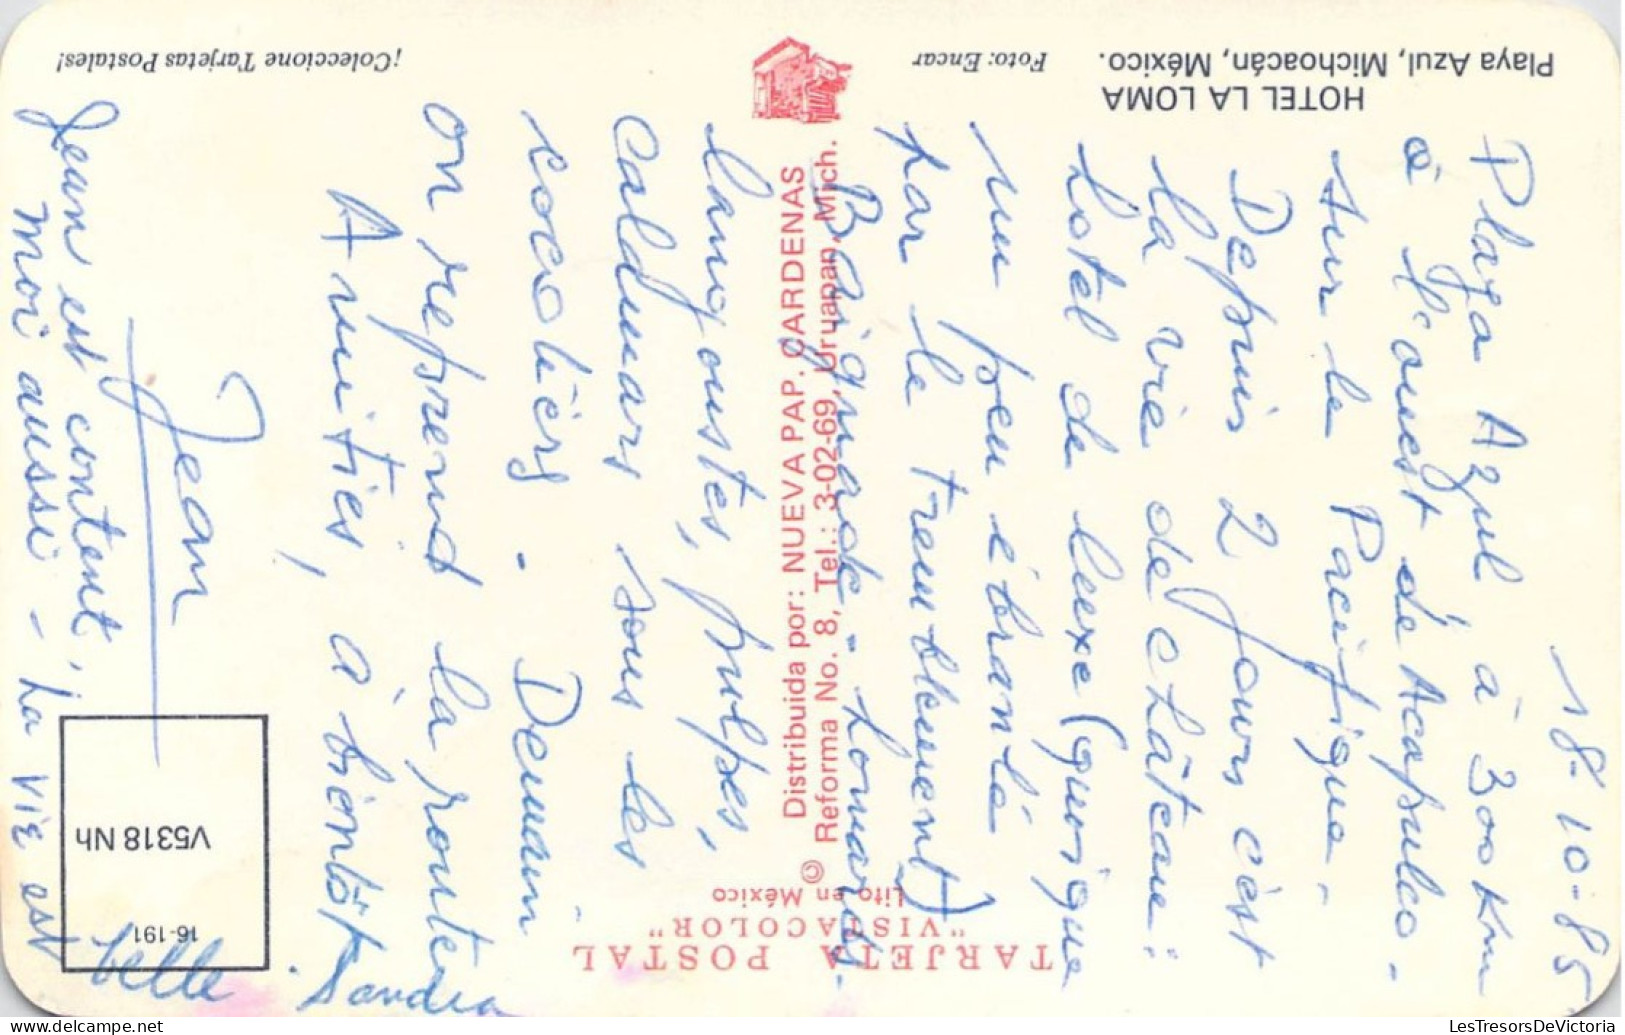 HOTEL LA LOMA
Playa Azul, Michoacán, México.
Foto: Encar
¡Coleccione Tarjetas Postales!
TARJETA POSTAL
"VISTACOLOR"
Lito en México
©
Distribuida por: NUEVA PAP. CARDENAS
Reforma No. 8, Tel.: 3-02-69, Uruapan, Mich.
16-191
V5318 Nh
18-10-85
Playa Azul à 300 Km
à l'ouest de Acapulco -
sur le Pacifique.
Depuis 2 jours c'est
la vie de château:
hotel de luxe (quoique
un peu ébranlé
par le tremblement)
Baignade - homards,
langoustes, pulpes,
calamars sous les
cocotiers. Demain
on reprend la route.
Amitiés, à bientôt.
Jean
Jean est content,
Moi aussi - La vie est
belle
Sandra
LesTresorsDeVictoria
delcampe.net